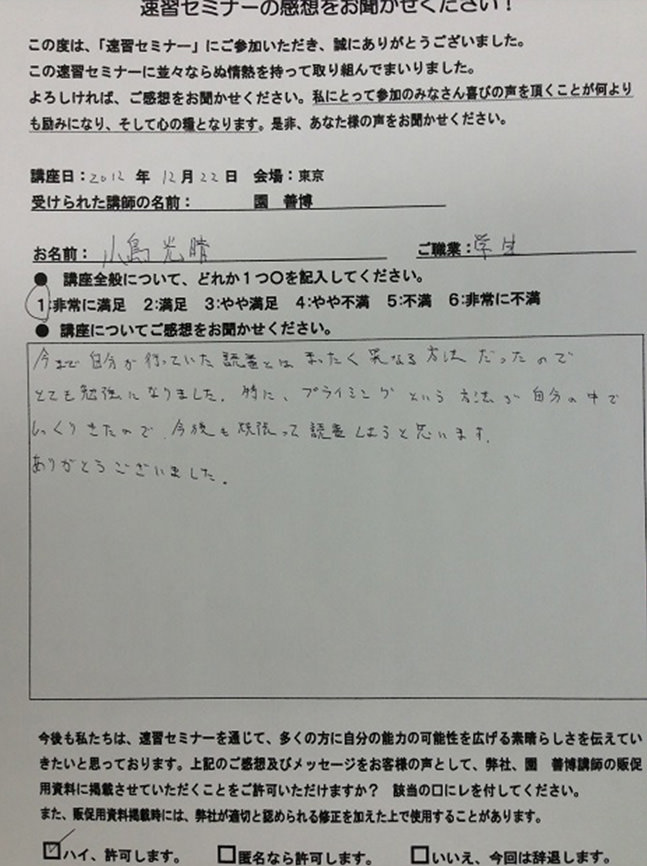 速習セミナーの感想をお聞かせください！
この度は、「速習セミナー」にご参加いただき、誠にありがとうございました。
この速習セミナーに並々ならぬ情熱を持って取り組んでまいりました。
よろしければ、ご感想をお聞かせください。私にとって参加のみなさん喜びの声を頂くことが何より
も励みになり、そして心の糧となります。是非、あなた様の声をお聞かせください。
講座日：2012 年 12月 22 日 会場：東京
受けられた講師の名前： 園 善博
お名前： 小島 光晴 ご職業：学生
● 講座全般について、どれか１つ〇を記入してください。
1:非常に満足 2:満足 3:やや満足 4:やや不満 5:不満 6:非常に不満
● 講座についてご感想をお聞かせください。
今まで自分が行っていた読書とはまったく異なる方法だったので
とても勉強になりました。特に、プライミングという方法が自分の中で
しっくりきたので、今後も頑張って読書しようと思います。
ありがとうございました。
今後も私たちは、速習セミナーを通じて、多くの方に自分の能力の可能性を広げる素晴らしさを伝えてい
きたいと思っております。上記のご感想及びメッセージをお客様の声として、弊社、園 善博講師の販促
用資料に掲載させていただくことをご許可いただけますか？ 該当の口にレを付してください。
また、販促用資料掲載時には、弊社が適切と認められる修正を加えた上で使用することがあります。
☑ハイ、許可します。 □匿名なら許可します。 □いいえ、今回は辞退します。